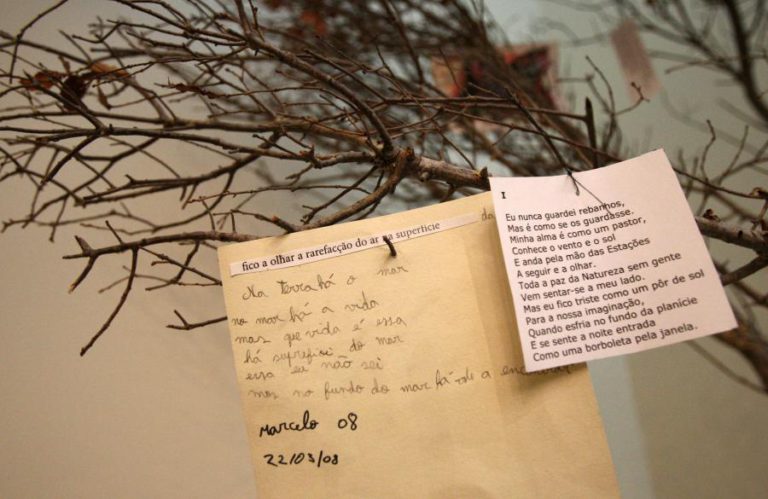 fico a olhar a rarefacção do ar na superficie
Na Terra há o mar
no mar há a vida
mas que vida é essa
há suprefici do mar
essa eu não sei
mas no fundo do mar há-de a
Marcelo 08
22/03/08
I
Eu nunca guardei rebanhos,
Mas é como se os guardasse.
Minha alma é como um pastor,
Conhece o vento e o sol
E anda pela mão das Estações
A seguir e a olhar.
Toda a paz da Natureza sem gente
Vem sentar-se a meu lado.
Mas eu fico triste como um pôr de sol
Para a nossa imaginação,
Quando esfria no fundo da planície
E se sente a noite entrada
Como uma borboleta pela janela.